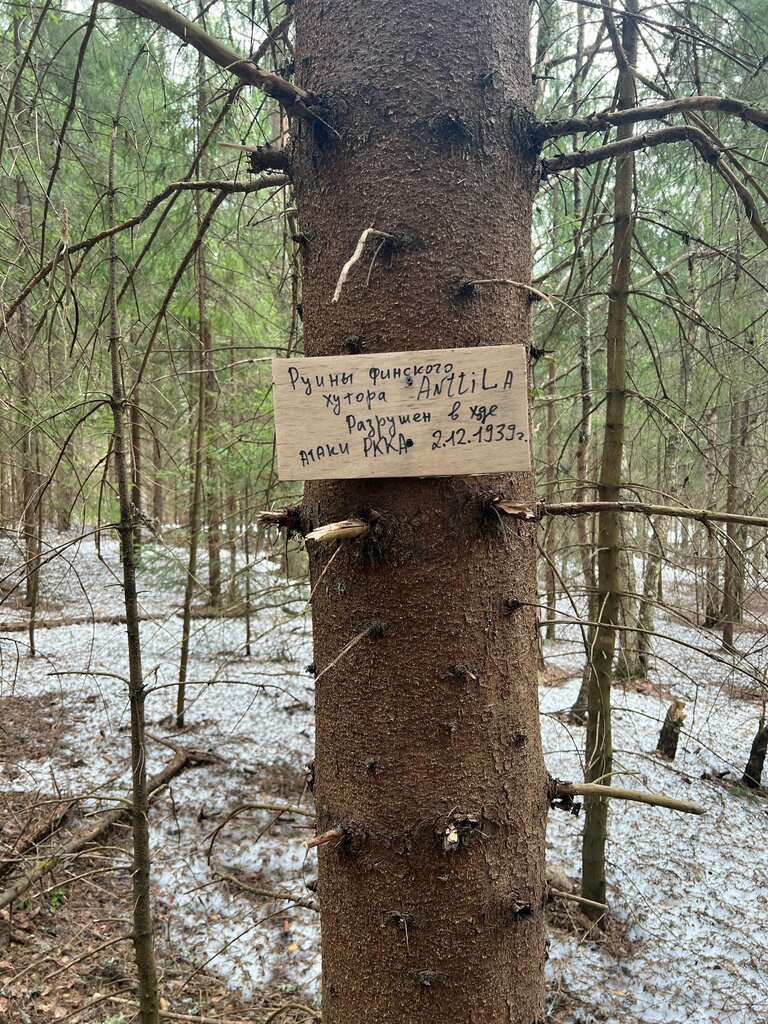 Руины финского
хутора AnttiLA
Разрушен в ходе
атаки РККА 2.12.1939г.